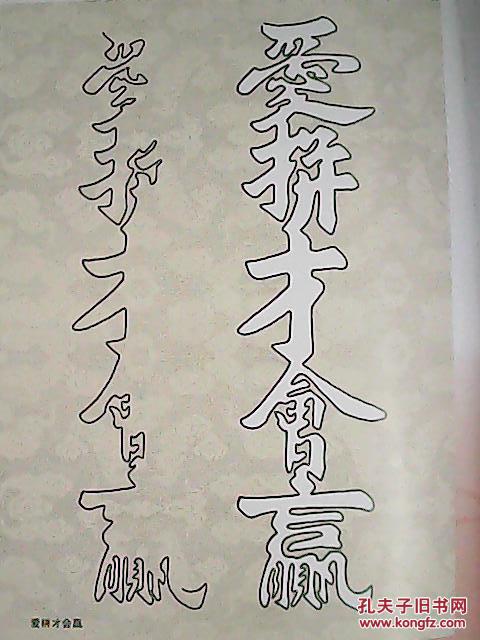 愛拚才會贏
爱拼才会赢
孔夫子旧书网
www.kongfz.com